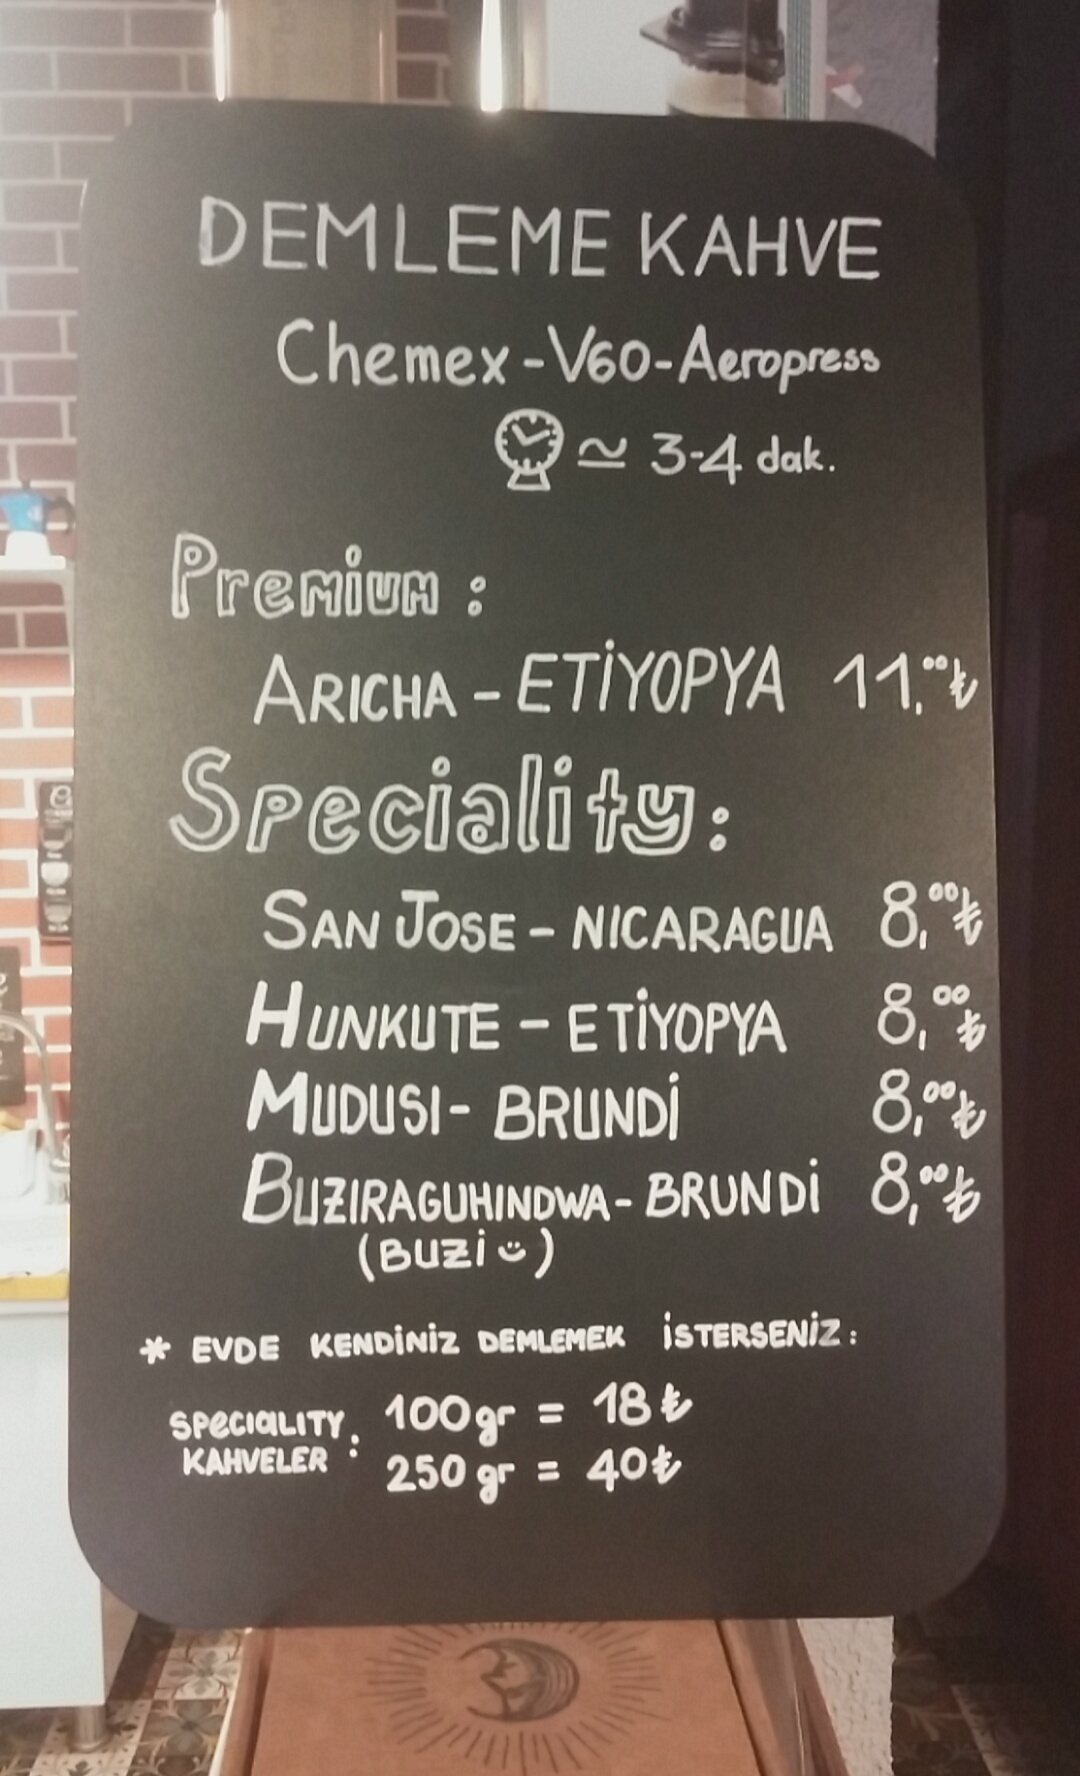 DEMLEME KAHVE
Chemex - V60 - Aeropress
≃ 3-4 dak.
Premium :
ARICHA - ETİYOPYA 11,00₺
Speciality:
SAN JOSE - NICARAGUA 8,00₺
HUNKUTE - ETİYOPYA 8,00₺
MUDUSI - BRUNDİ 8,00₺
BUZIRAGUHINDWA - BRUNDİ 8,00₺
(BUZİ)
* EVDE KENDİNİZ DEMLEMEK İSTERSENİZ:
SPECIALITY KAHVELER : 100gr = 18₺
250gr = 40₺